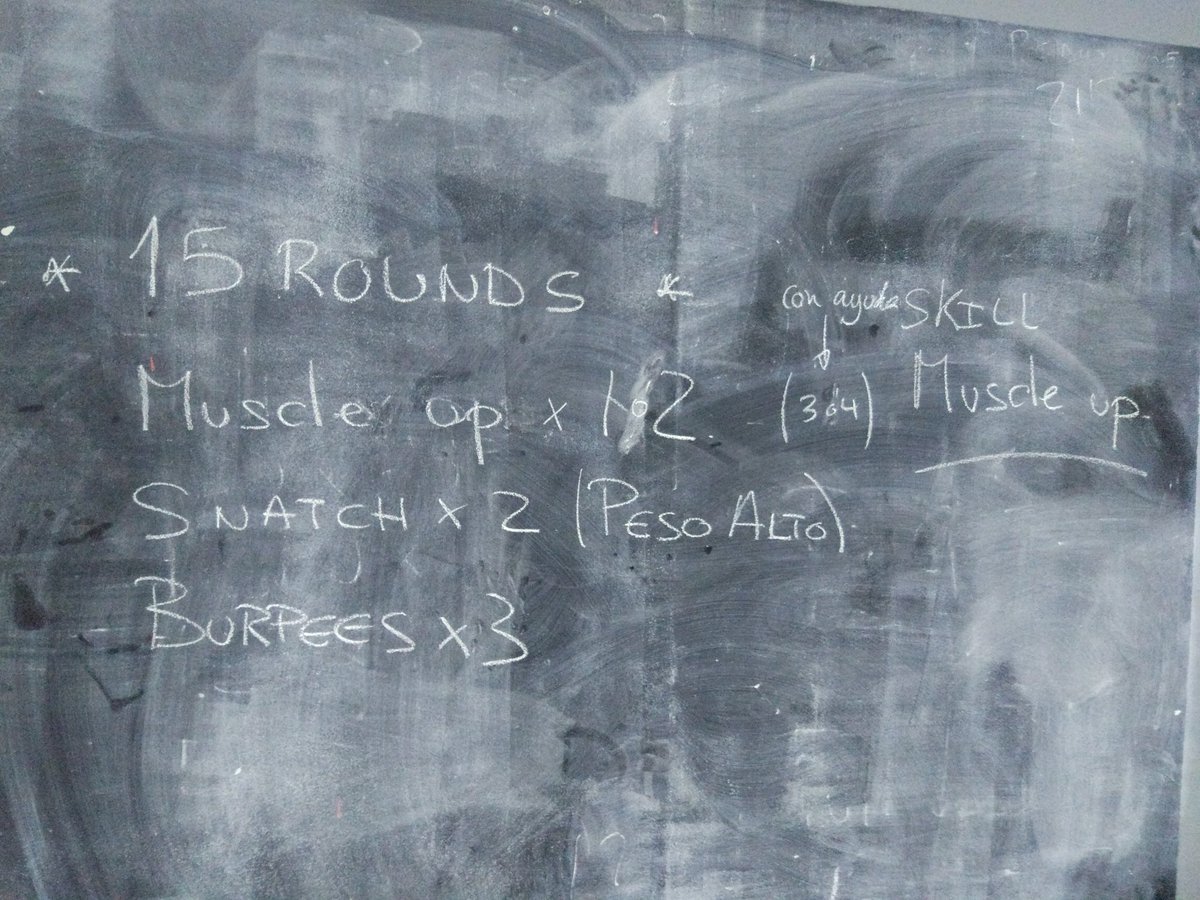 * 15 ROUNDS *
Muscle up x 1ó2. (3ó4)
SNATCH x 2 (PESO ALTO).
BURPEES x 3
con ayuda
SKILL
Muscle up